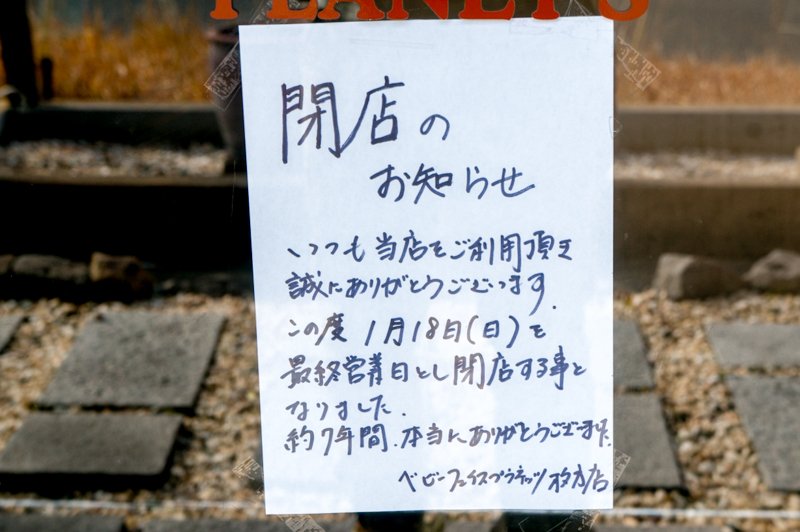 PLANET'S
閉店の
お知らせ
いつも当店をご利用頂き
誠にありがとうございます.
この度 1月18日(日)を
最終営業日とし閉店する事と
なりました.
約7年間.本当にありがとうございました.
ベビーフェイスプラネッツ枚方店